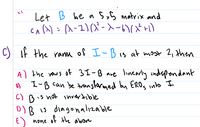 Let B be a 5x5 matrix and
C_A(λ) = (λ-2)(λ²-λ-6)(λ²+1)
C) If the rank of I-B is at most 2, then
A) the rows of 3I-B are linearly independent
B) I-B can be transformed by EROs into I
C) B is not invertible
D) B is diagonalizable
E) none of the above